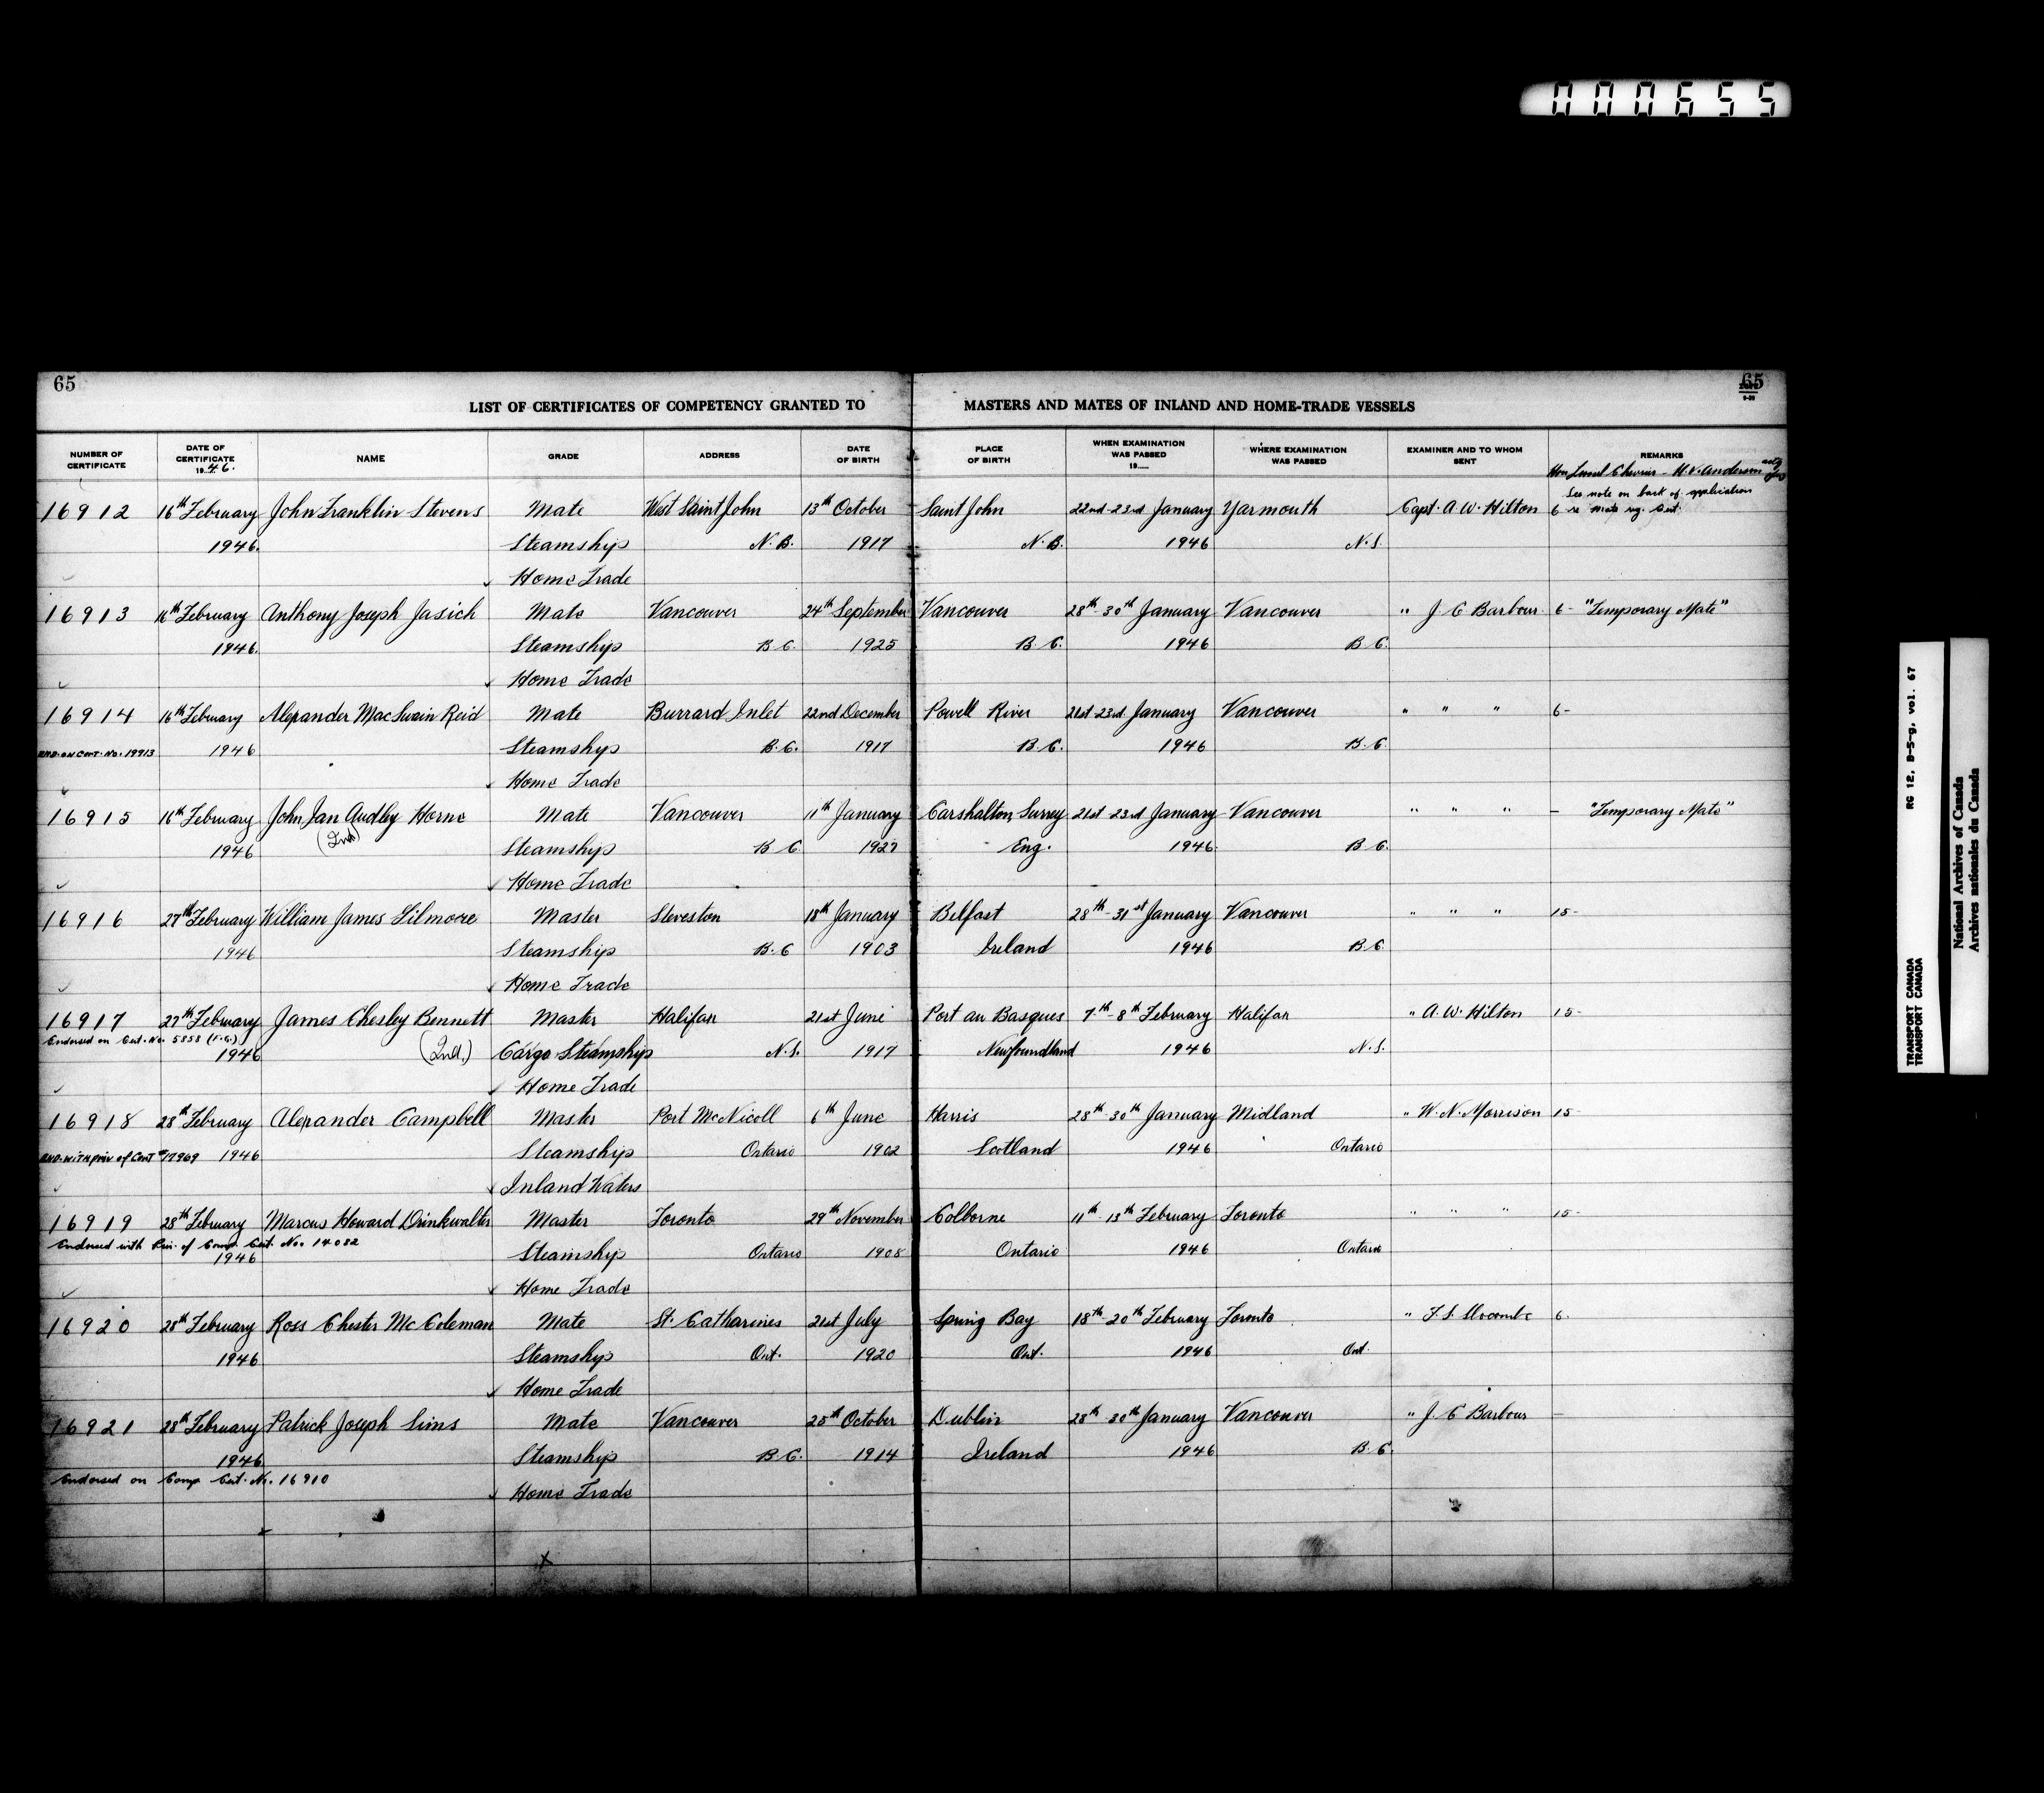 000655
65
65
LIST OF CERTIFICATES OF COMPETENCY GRANTED TO MASTERS AND MATES OF INLAND AND HOME-TRADE VESSELS
NUMBER OF CERTIFICATE DATE OF CERTIFICATE 1946. NAME GRADE ADDRESS DATE OF BIRTH PLACE OF BIRTH WHEN EXAMINATION WAS PASSED 19 WHERE EXAMINATION WAS PASSED EXAMINER AND TO WHOM SENT REMARKS
Hon Lionel Chevrier - H.V. Anderson
See note on back of application
16912 16th February John Franklin Stevens Mate West Saint John 13th October Saint John 22nd-23rd January Yarmouth Capt. A.W. Hilton 6 re Mate Cert.
1946. Steamship N.B. 1917 N.B. 1946 N.S.
Home Trade
16913 16th February Anthony Joseph Jasich Mate Vancouver 24th September Vancouver 28th-30th January Vancouver " J C Barbour 6- "Temporary Mate"
1946. Steamship B.C. 1925 B.C. 1946 B.C.
Home Trade
16914 16th February Alexander MacSwain Reid Mate Burrard Inlet 22nd December Powell River 21st-23rd January Vancouver " " " 6-
END. ON CERT. NO. 19913 1946 Steamship B.C. 1917 B.C. 1946 B.C.
Home Trade
16915 16th February John Ian Audley Horne Mate Vancouver 11th January Carshalton, Surrey 21st-23rd January Vancouver " " " - "Temporary Mate"
(Ind)
1946 Steamship B.C. 1927 Eng. 1946 B.C.
Home Trade
16916 27th February William James Gilmore Master Steveston 18th January Belfast 28th-31st January Vancouver " " " 15-
1946 Steamship B.C. 1903 Ireland 1946 B.C.
Home Trade
16917 27th February James Chesley Bennett Master Halifax 21st June Port au Basques 7th-8th February Halifax " A.W. Hilton 15-
Endorsed on Cert. No. 5858 (F.G.)
1946 (Ind.) Cargo Steamship N.S. 1917 Newfoundland 1946 N.S.
Home Trade
16918 28th February Alexander Campbell Master Port McNicoll 6th June Harris 28th-30th January Midland " W.N. Morrison 15-
END. WITH PRIV of CERT #17969 1946 Steamship Ontario 1902 Scotland 1946 Ontario
Inland Waters
16919 28th February Marcus Howard Drinkwalter Master Toronto 29th November Colborne 11th-13th February Toronto " " " 15-
Endorsed with Priv. of Comp. Cert. No. 14082
1946 Steamship Ontario 1908 Ontario 1946 Ontario
Home Trade
16920 28th February Ross Chester McColeman Mate St. Catharines 21st July Spring Bay 18th-20th February Toronto " F.S. Slocombe 6.
1946 Steamship Ont. 1920 Ont. 1946 Ont.
Home Trade
16921 28th February Patrick Joseph Sims Mate Vancouver 25th October Dublin 28th-30th January Vancouver " J. C Barbour -
1946 Steamship B.C. 1914 Ireland 1946 B.C.
Endorsed on Comp Cert. No. 16910
Home Trade
x
RG 12, B-5-g, vol. 67
TRANSPORT CANADA
TRANSPORT CANADA
National Archives of Canada
Archives nationales du Canada